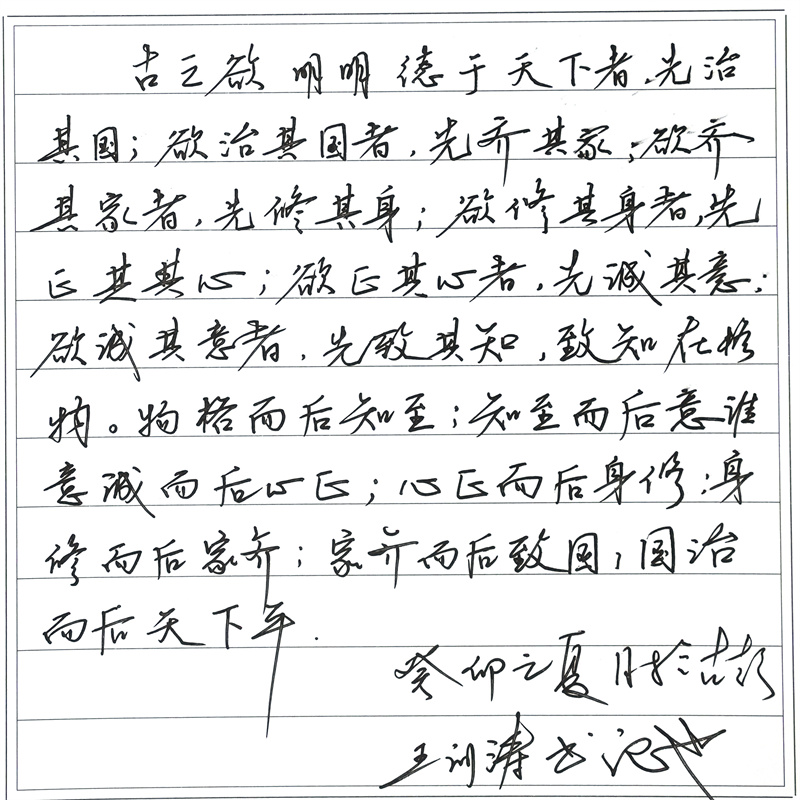 古之欲明明德于天下者,先治
其国;欲治其国者,先齐其家;欲齐
其家者,先修其身;欲修其身者,先
正其其心;欲正其心者,先诚其意;
欲诚其意者,先致其知,致知在格
物。物格而后知至;知至而后意谁
意诚而后心正;心正而后身修;身
修而后家齐;家齐而后致国;国治
而后天下平.
癸卯之夏
王训涛书